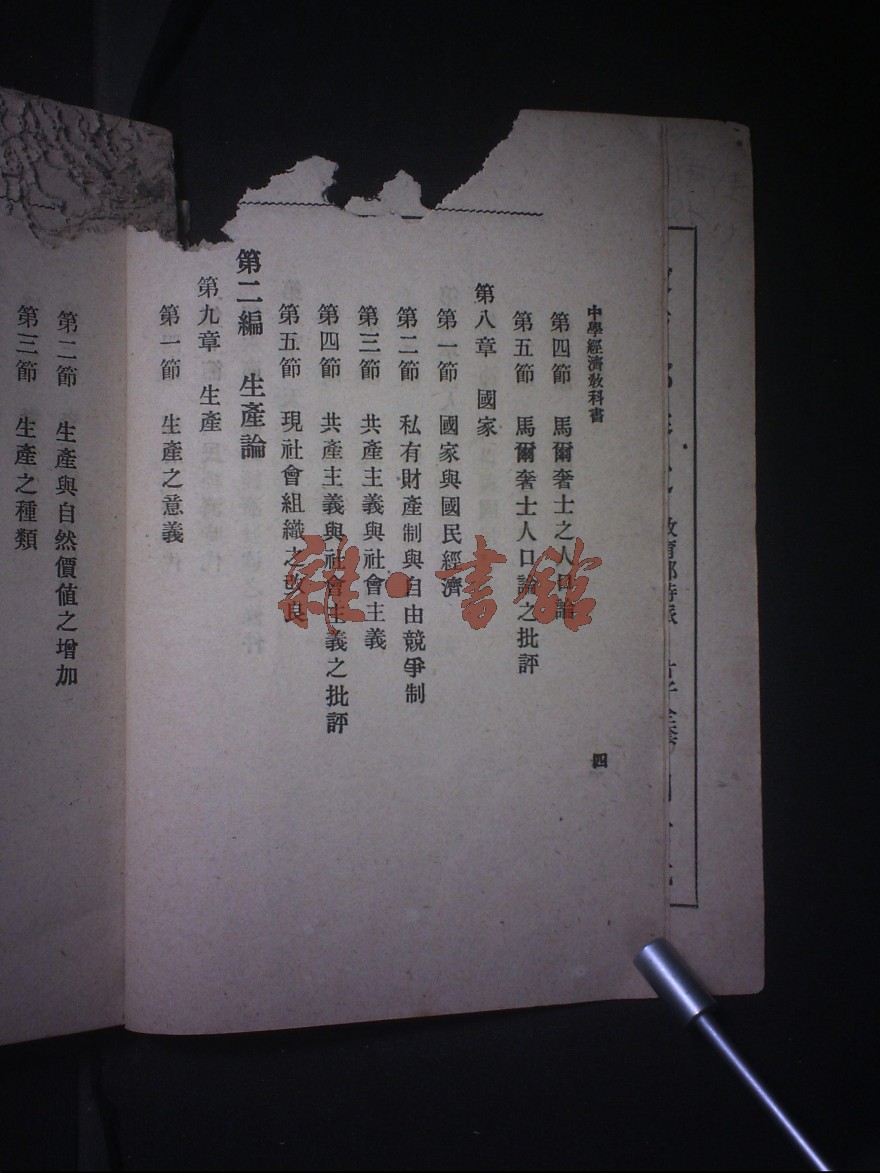 中學經濟敎科書
第四節　馬爾奢士之人口論
第五節　馬爾奢士人口論之批評
第八章　國家
第一節　國家與國民經濟
第二節　私有財產制與自由競爭制
第三節　共產主義與社會主義
第四節　共產主義與社會主義之批評
第五節　現社會組織之改良
第二編　生產論
第九章　生產
第一節　生產之意義
四
第二節　生產與自然價値之增加
第三節　生產之種類
雜·書館